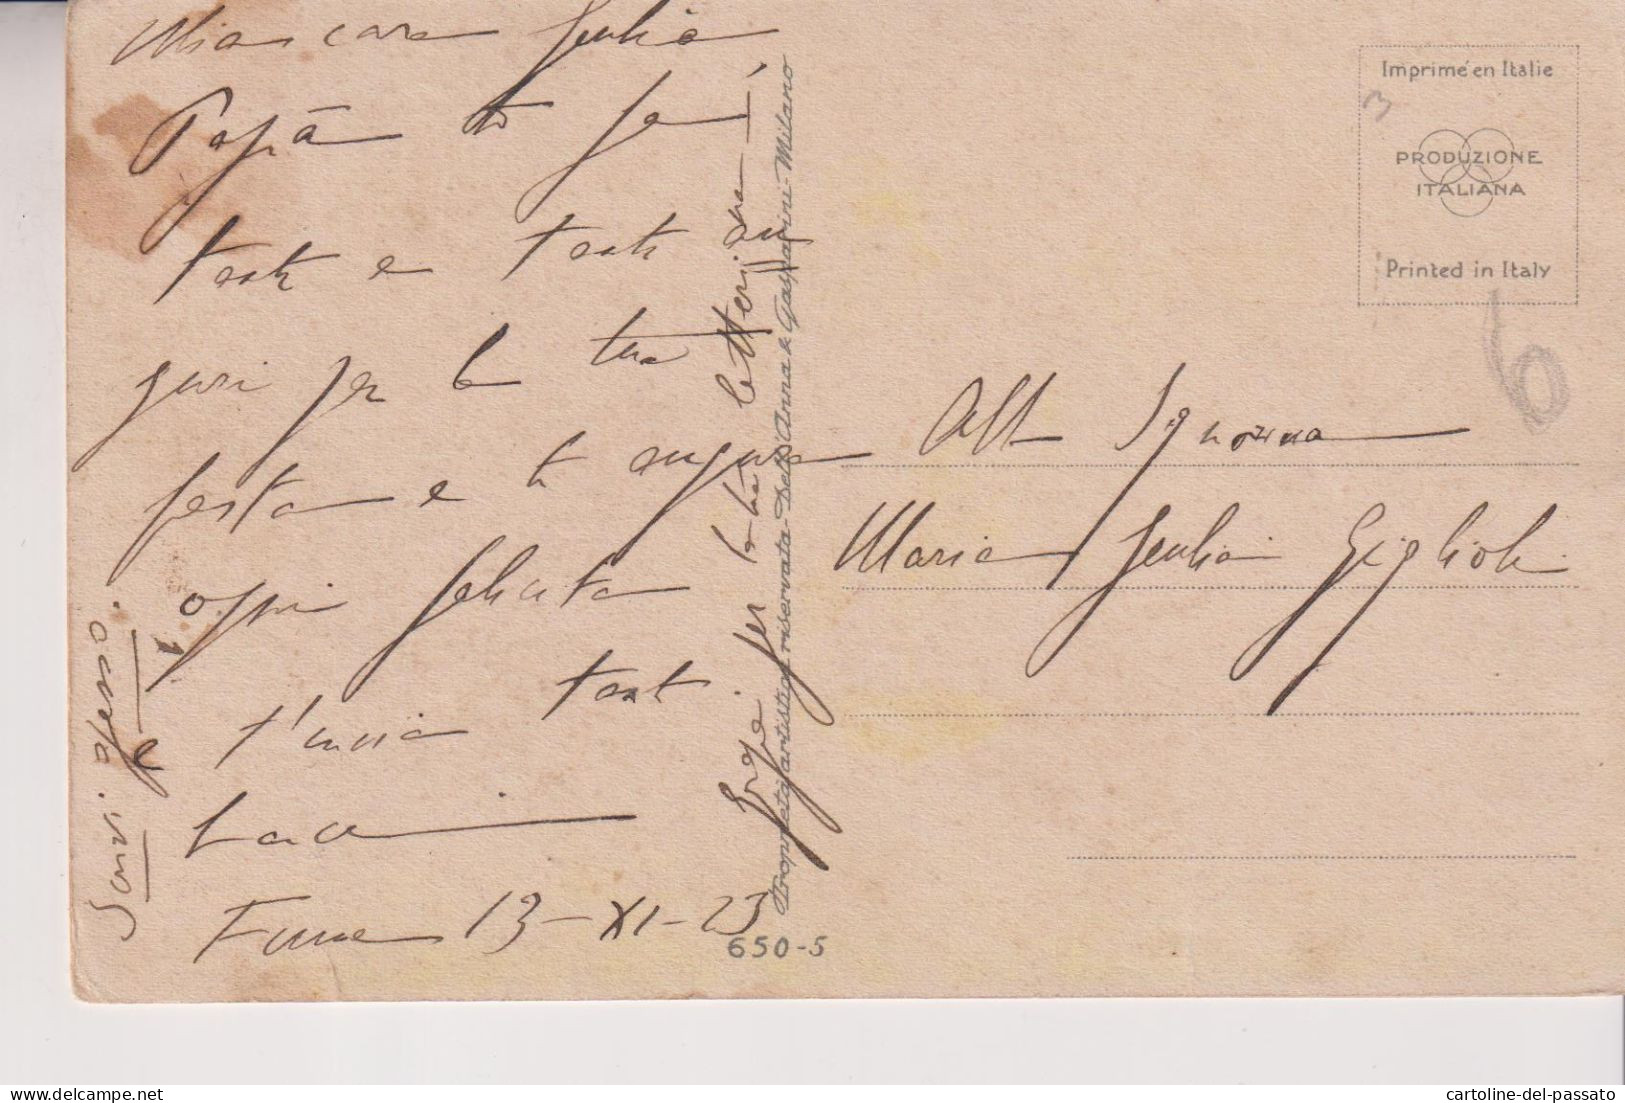 Mia cara Giulia
Papà ti fa
tanti e tanti au
guri per la tua
festa e ti augura
ogni felicità
t'invia tanti
baci
Fiume 13-XI-23
Scrivi spesso.
per la tua letterina
Alla Signorina
Maria Giulia Giglioli
Imprimé en Italie
PRODUZIONE
ITALIANA
Printed in Italy
6
Proprietà artistica riservata - Dell'Anna & Gasparini - Milano
650-5
cartoline-del-passato